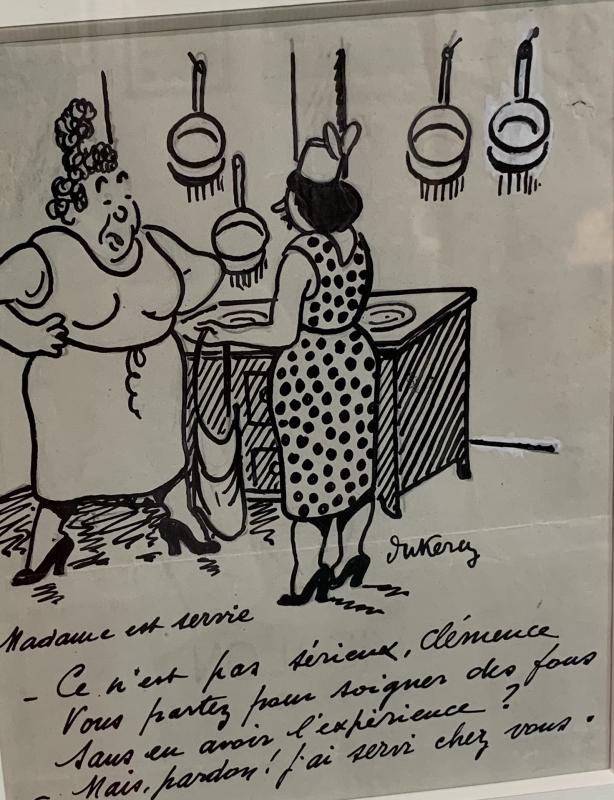 duKercy
Madame est servie
- Ce n'est pas sérieux, Clémence
Vous partez pour soigner des fous
Sans en avoir l'expérience ?
Mais, pardon ! j'ai servi chez vous.